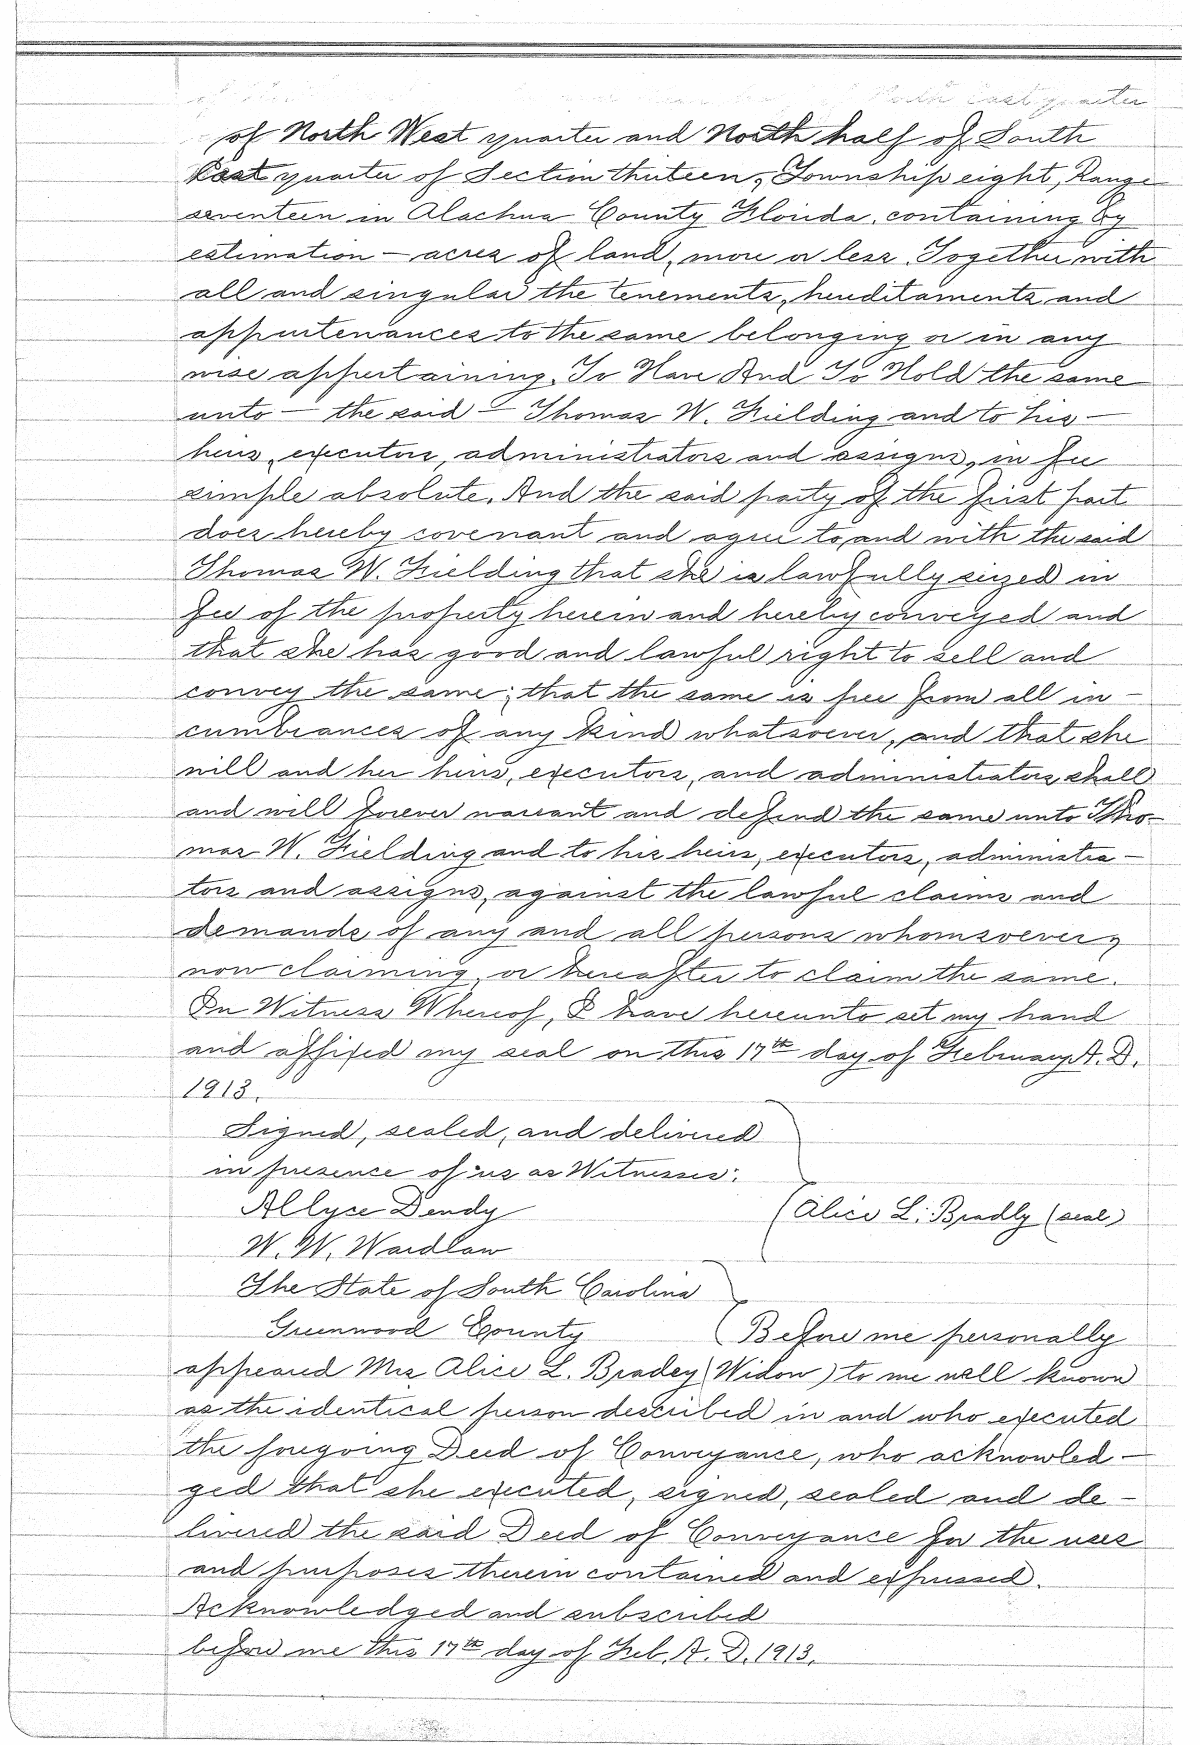 North East quarter
of North West quarter and North half of South
East quarter of Section thirteen, Township eight, Range
seventeen in Alachua County Florida, containing by
estimation — acres of land, more or less. Together with
all and singular the tenements, hereditaments and
appurtenances to the same belonging or in any
wise appertaining. To Have And To Hold the same
unto — the said — Thomas W. Fielding and to his —
heirs, executors, administrators and assigns, in fee
simple absolute. And the said party of the first part
does hereby covenant and agree to and with the said
Thomas W. Fielding that she is lawfully seized in
fee of the property herein and hereby conveyed and
that she has good and lawful right to sell and
convey the same; that the same is free from all in-
cumbrances of any kind whatsoever, and that she
will and her heirs, executors, and administrators shall
and will forever warrant and defend the same unto Tho-
mas W. Fielding and to his heirs, executors, administra-
tors and assigns, against the lawful claims and
demands of any and all persons whomsoever,
now claiming or hereafter to claim the same.
In Witness Whereof, I have hereunto set my hand
and affixed my seal on this 17th day of February A. D.
1913.
Signed, sealed, and delivered
in presence of us as Witnesses:
Allyce Dendy
Alice L. Bradly (seal)
W. W. Wardlaw
The State of South Carolina
Greenwood County
Before me personally
appeared Mrs Alice L. Bradey (Widow) to me well known
as the identical person described in and who executed
the foregoing Deed of Conveyance, who acknowled-
ged that she executed, signed, sealed and de-
livered the said Deed of Conveyance for the uses
and purposes therein contained and expressed.
Acknowledged and subscribed
before me this 17th day of Feb. A. D. 1913.